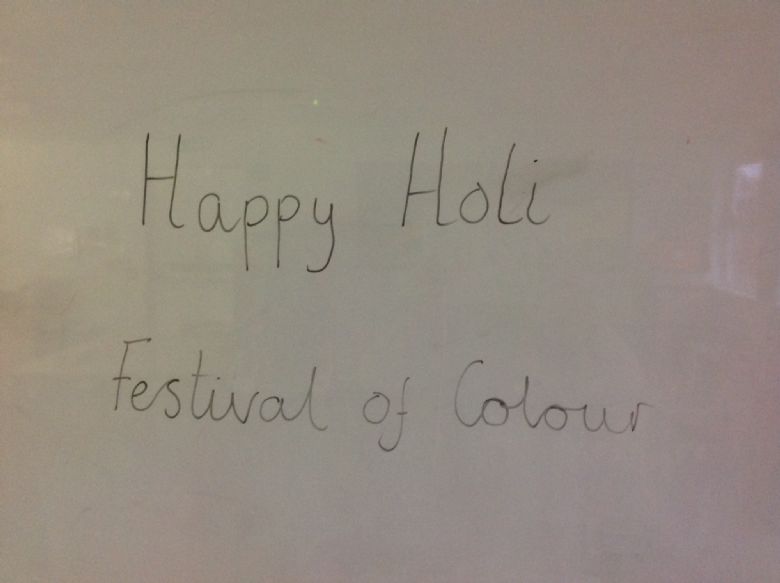 Happy Holi
Festival of Colour